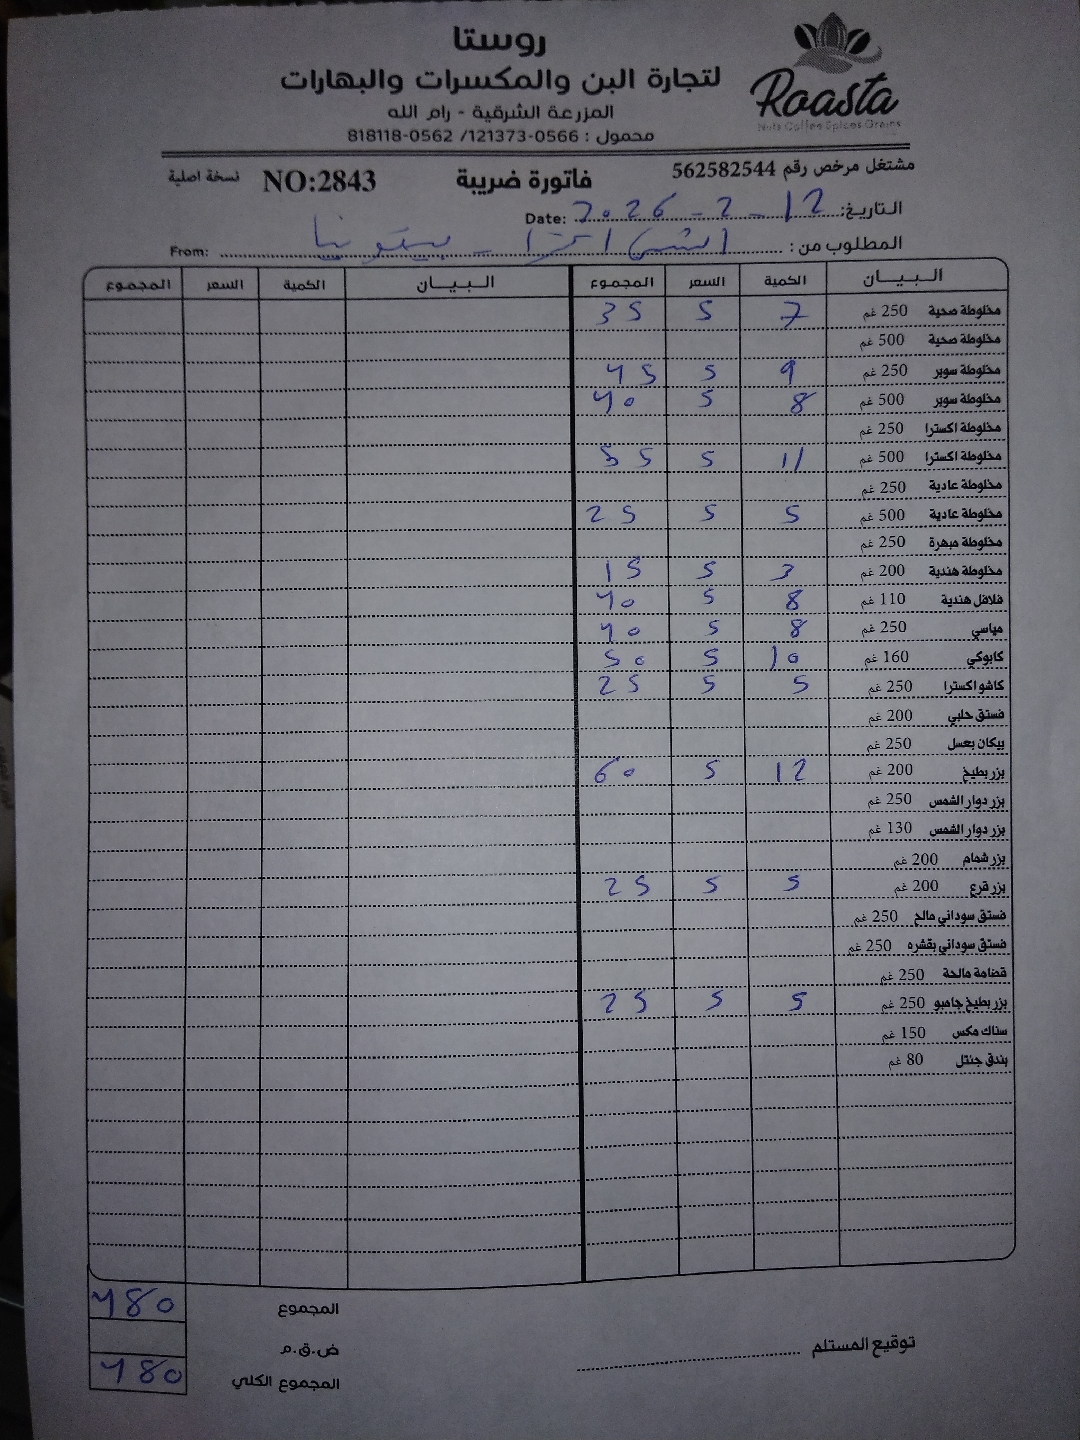 روستا
لتجارة البن والمكسرات والبهارات
المزرعة الشرقية - رام الله
محمول : 0566-121373/ 0562-818118
Roasta
Nuts Coffee Spices Grains
مشتغل مرخص رقم 562582544
فاتورة ضريبة
NO:2843
نسخة اصلية
التاريخ: 12-2-2026 Date:
المطلوب من : From:
البيــان الكمية السعر المجموع البيــان الكمية السعر المجموع
مخلوطة صحية 250 غم 7 5 35
مخلوطة صحية 500 غم
مخلوطة سوبر 250 غم 9 5 45
مخلوطة سوبر 500 غم 8 5 40
مخلوطة اكسترا 250 غم
مخلوطة اكسترا 500 غم 11 5 55
مخلوطة عادية 250 غم
مخلوطة عادية 500 غم 5 5 25
مخلوطة مبهرة 250 غم
مخلوطة هندية 200 غم 3 5 15
فلافل هندية 110 غم 8 5 40
مياسي 250 غم 8 5 40
كابوكي 160 غم 10 5 50
كاشو اكسترا 250 غم 5 5 25
فستق حلبي 200 غم
بيكان بعسل 250 غم
بزر بطيخ 200 غم 12 5 60
بزر دوار الشمس 250 غم
بزر دوار الشمس 130 غم
بزر شمام 200 غم
بزر قرع 200 غم 5 5 25
فستق سوداني مالح 250 غم
فستق سوداني بقشره 250 غم
قضامة مالحة 250 غم
بزر بطيخ جامبو 250 غم 5 5 25
سناك مكس 150 غم
بندق جنتل 80 غم
المجموع 480
ض.ق.م
المجموع الكلي 480
توقيع المستلم